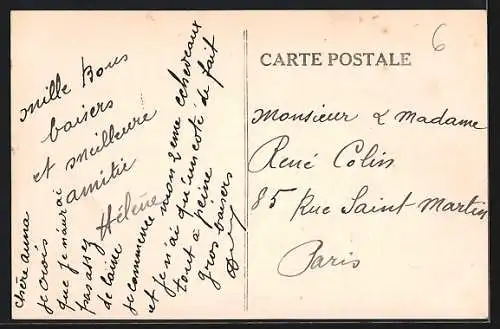 Mille Bons
baisers
et meilleure
amitié
Hélène
chère anna
je crois
que je n'aurai
pas assez
de laine
je commence mon 2ème echeveaux
et je n'ai qu'un coté de fait
tout à peine
gros baisers
CARTE POSTALE
6
Monsieur & Madame
René Colin
85 Rue Saint Martin
Paris